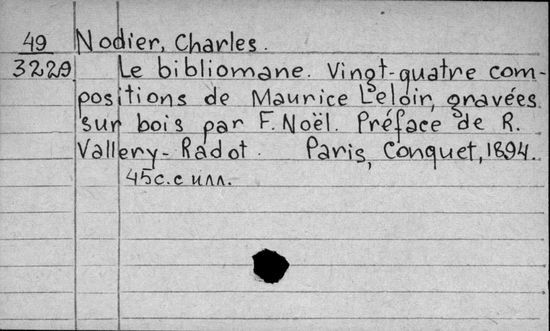 49 Nodier, Charles.
3229 Le bibliomane. Vingt-quatre com-
positions de Maurice Leloir, gravées
sur bois par F. Noël. Préface de R.
Vallery-Radot. Paris, Conquet, 1894.
45c. с илл.